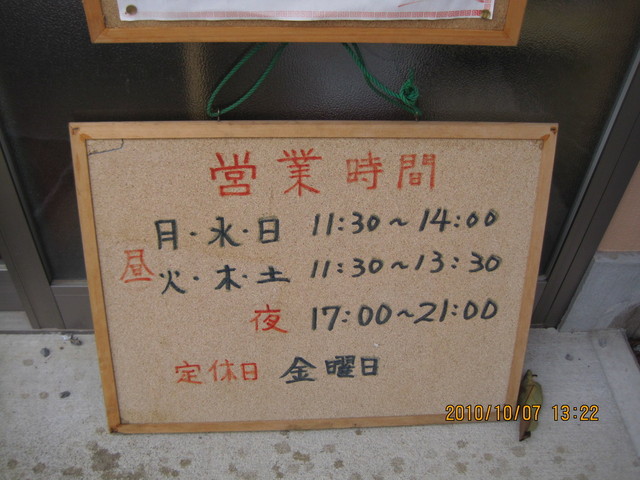 営業時間
月・水・日 11:30～14:00
昼
火・木・土 11:30～13:30
夜 17:00～21:00
定休日 金曜日
2010/10/07 13:22